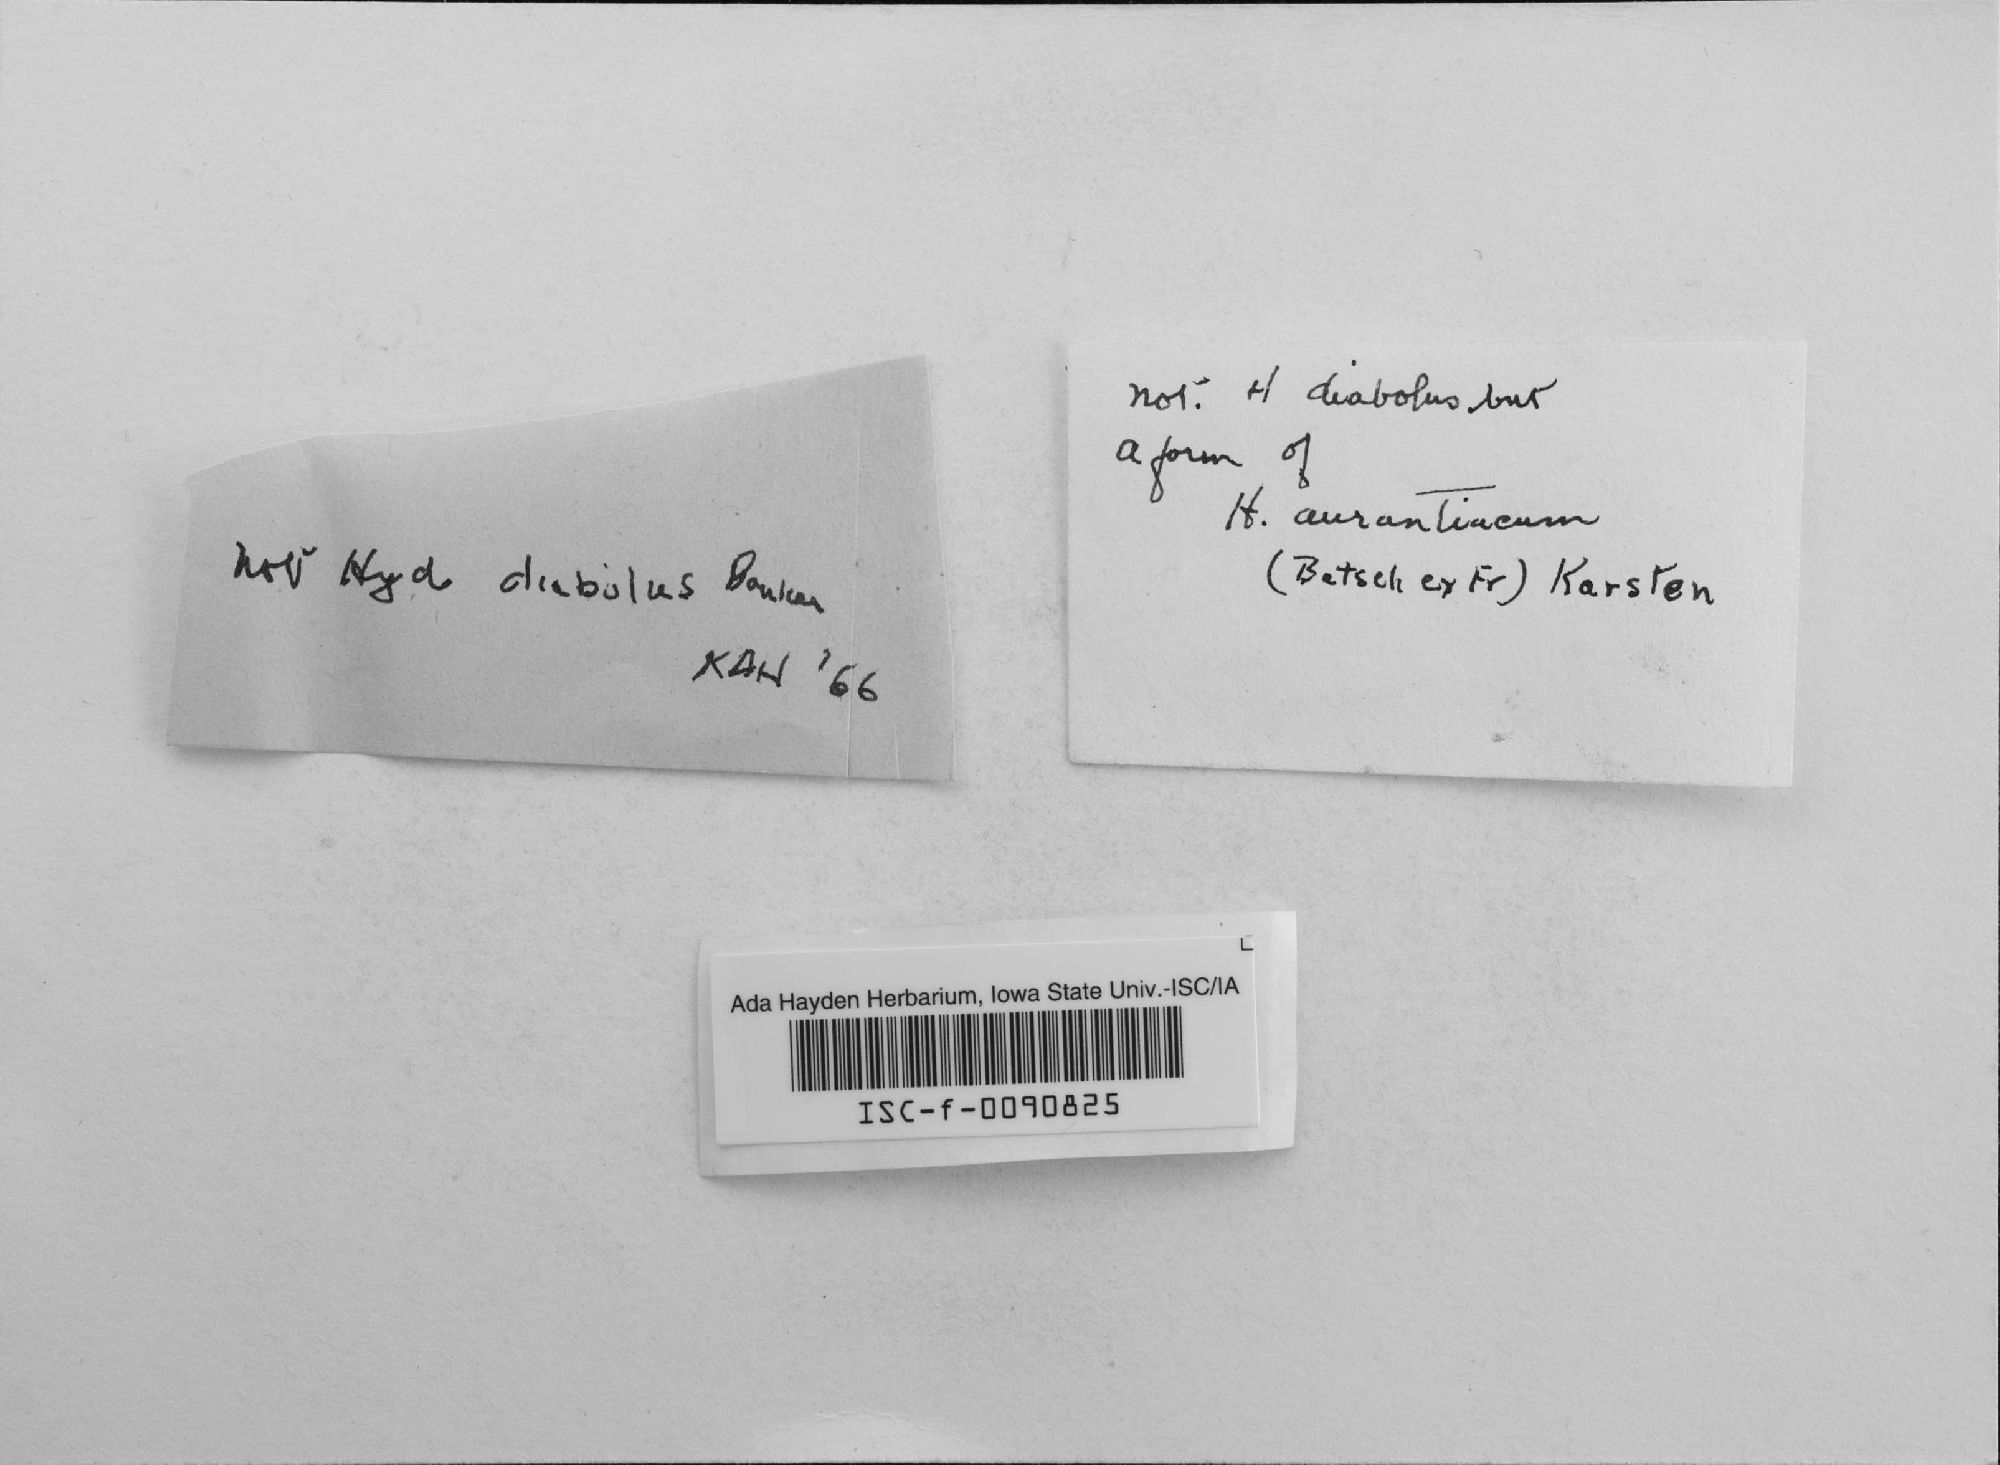 not Hyd diabolus Banker
KAH '66
not. H diabolus but
a form of
H. aurantiacum
(Batsch ex Fr) Karsten
Ada Hayden Herbarium, Iowa State Univ.-ISC/IA
ISC-f-0090825